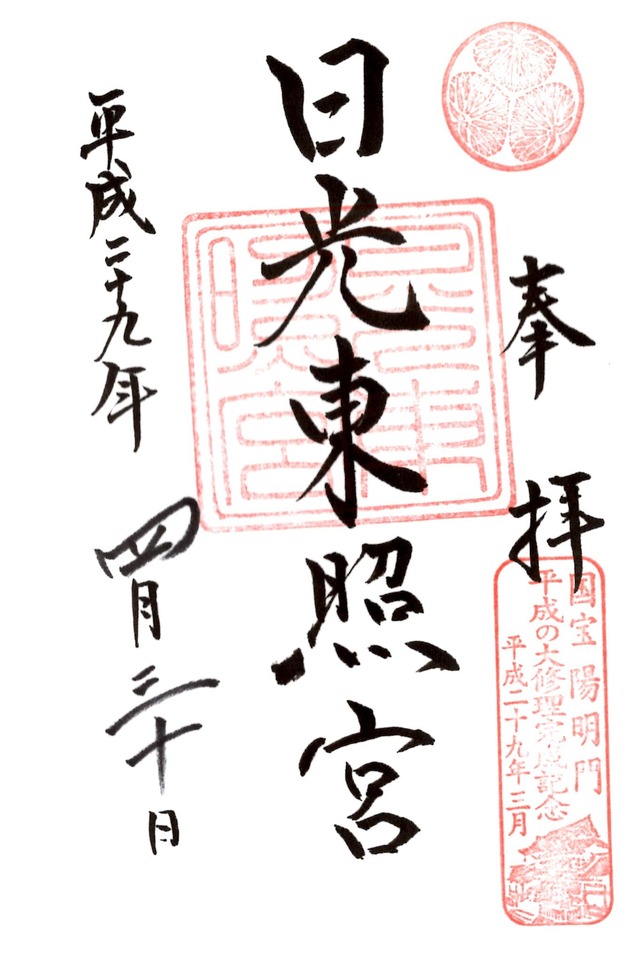 奉拝
国宝 陽明門
平成の大修理完成記念
平成二十九年三月
日光東照宮
東照宮
平成二十九年四月三十日